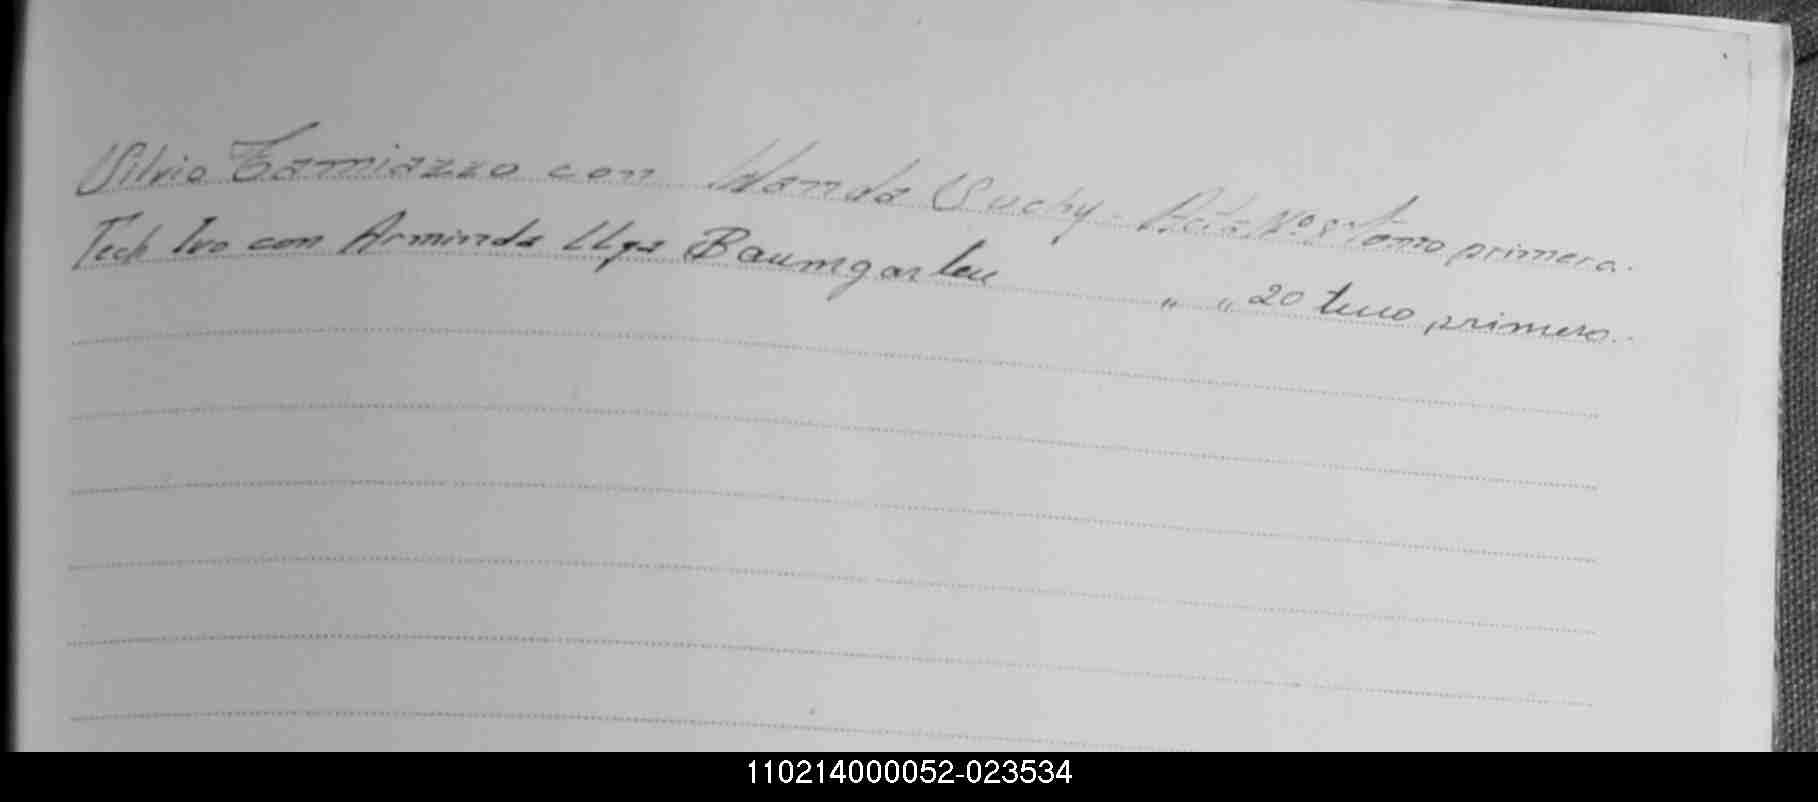 Silvio Tamiazzo con Wanda Suchy - Acta Nº 8 Tomo primero.
Tech Ivo con Arminda Olga Baumgarten " " 20 tomo primero.
110214000052-023534